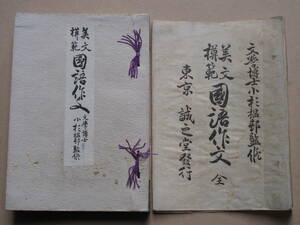 美文
模範
國語作文
文學博士
小杉榲邨監修
文學博士小杉榲邨監修
美文
模範
國語作文 全
東京 誠之堂發行